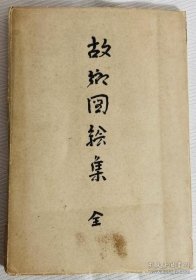 故郷図絵集
全